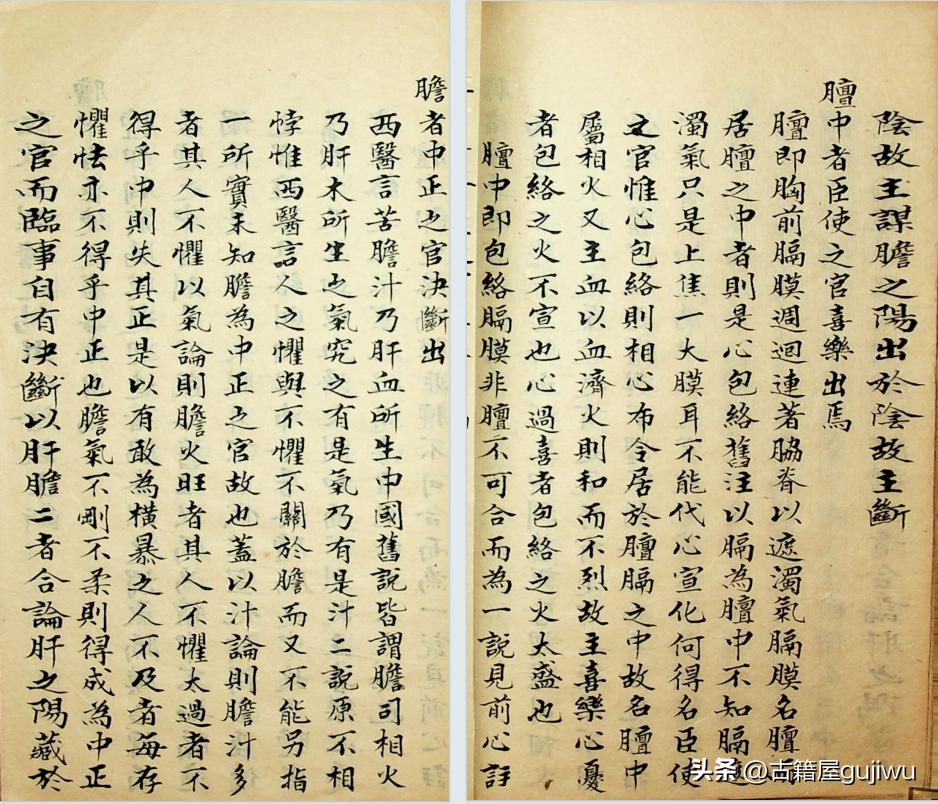 膽者中正之官決斷出
西醫言苦膽汁乃肝血所生中國舊說皆謂膽司相火
乃肝木所生之氣究之有是氣乃有是汁二說原不相
悖惟西醫言人之懼與不懼不關於膽而又不能另指
一所實未知膽為中正之官故也蓋以汁論則膽汁多
者其人不懼以氣論則膽火旺者其人不懼太過者不
得乎中則失其正是以有敢為橫暴之人不及者每存
懼怯亦不得乎中正也膽氣不剛不柔則得成為中正
之官而臨事自有決斷以肝膽二者合論肝之陽藏於
陰故主謀膽之陽出於陰故主斷
膻中者臣使之官喜樂出焉
膻即胸前膈膜週迴連著脇脊以遮濁氣膈膜名膻
居膻之中者則是心包絡舊注以膈為膻中不知膈
濁氣只是上焦一大膜耳不能代心宣化何得名臣使
之官惟心包絡則相心布令居於膻膈之中故名膻中
屬相火又主血以血濟火則和而不烈故主喜樂心憂
者包絡之火不宣也心過喜者包絡之火太盛也
膻中即包絡膈膜非膻不可合而為一說見前心註
头条 @古籍屋gujiwu